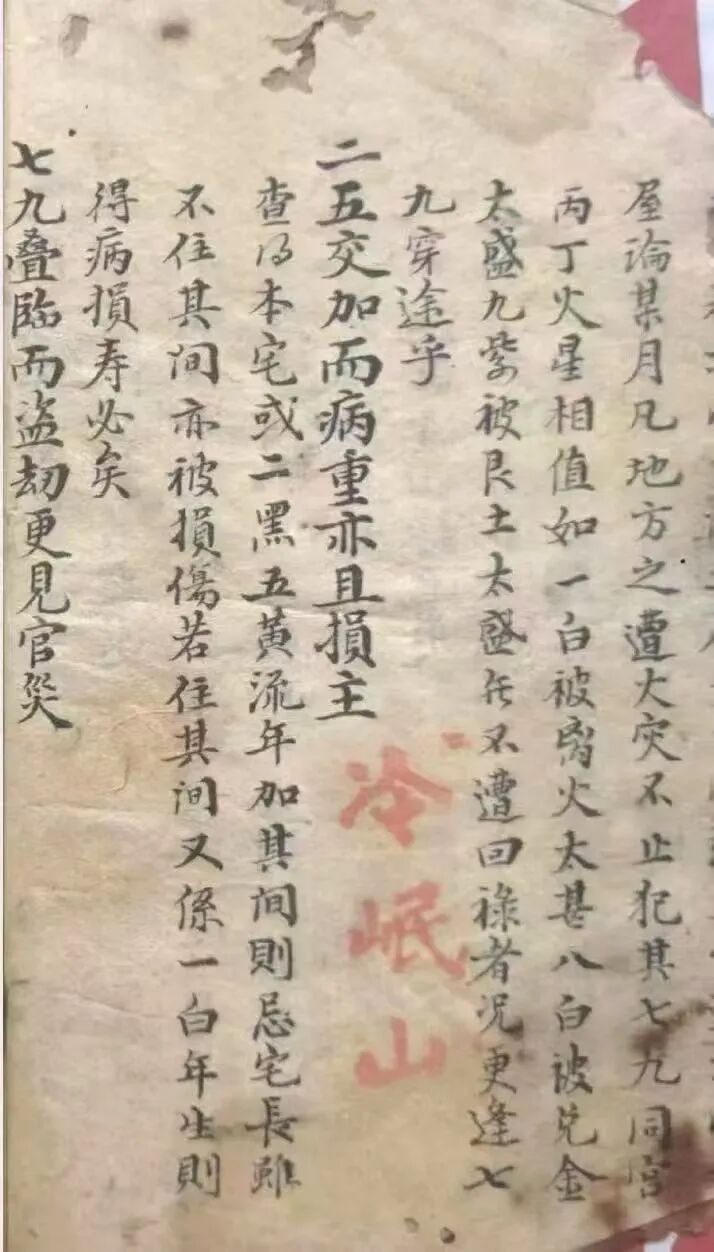 屋論某月凡地方之遭大灾不止犯其七九同宮
丙丁火星相值如一白被离火太甚八白被兌金
太盛九紫被艮土太盛无不遭回祿者况更逢七
九穿途乎
二五交加而病重亦且損主
查得本宅或二黑五黃流年加其间則忌宅長雖
不住其间亦被損傷若住其间又係一白年生則
得病損寿必矣
七九叠臨而盗劫更見官災
冷岷山